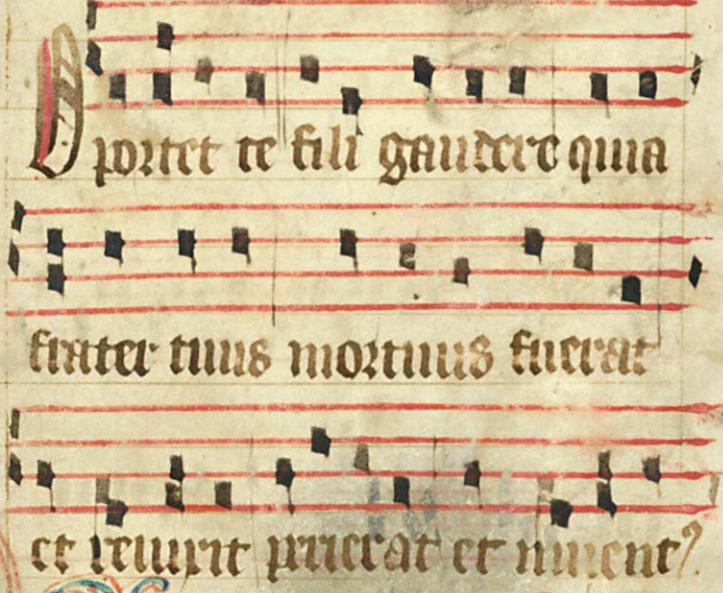 Oportet te fili gaudere quia
frater tuus mortuus fuerat
et reuixit perierat et inuent᾽